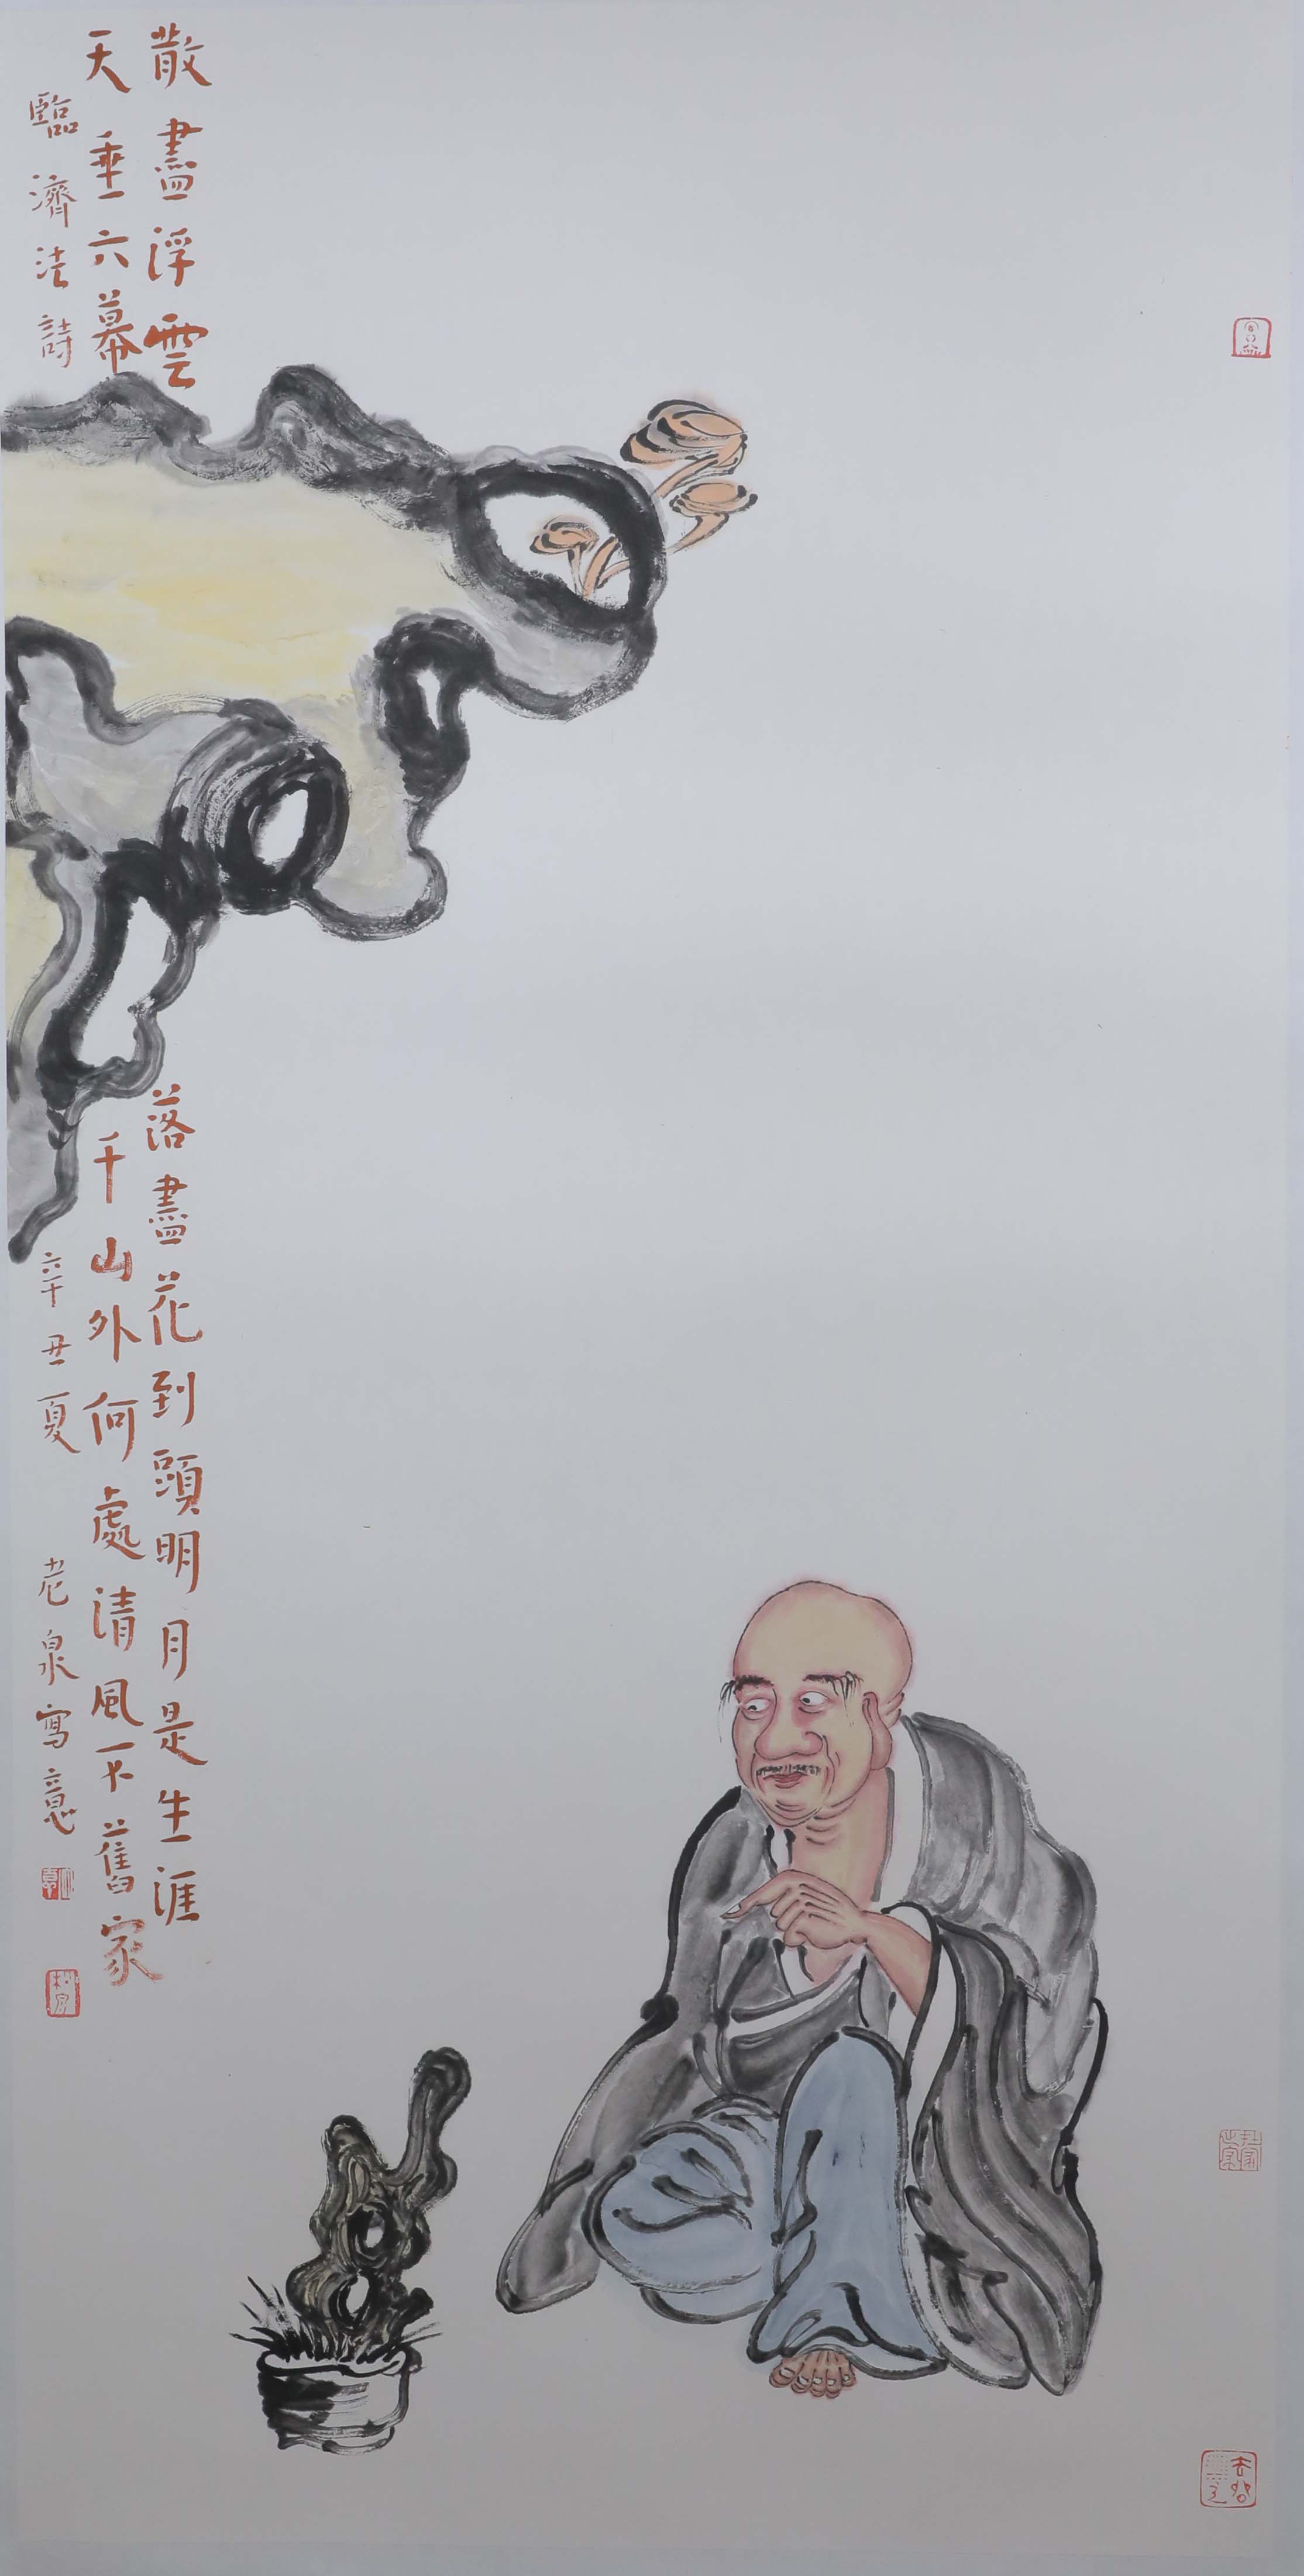 散盡浮雲落盡花到頭明月是生涯
天垂六幕千山外何處清風不舊家
臨濟法詩 辛丑夏 老泉寫意